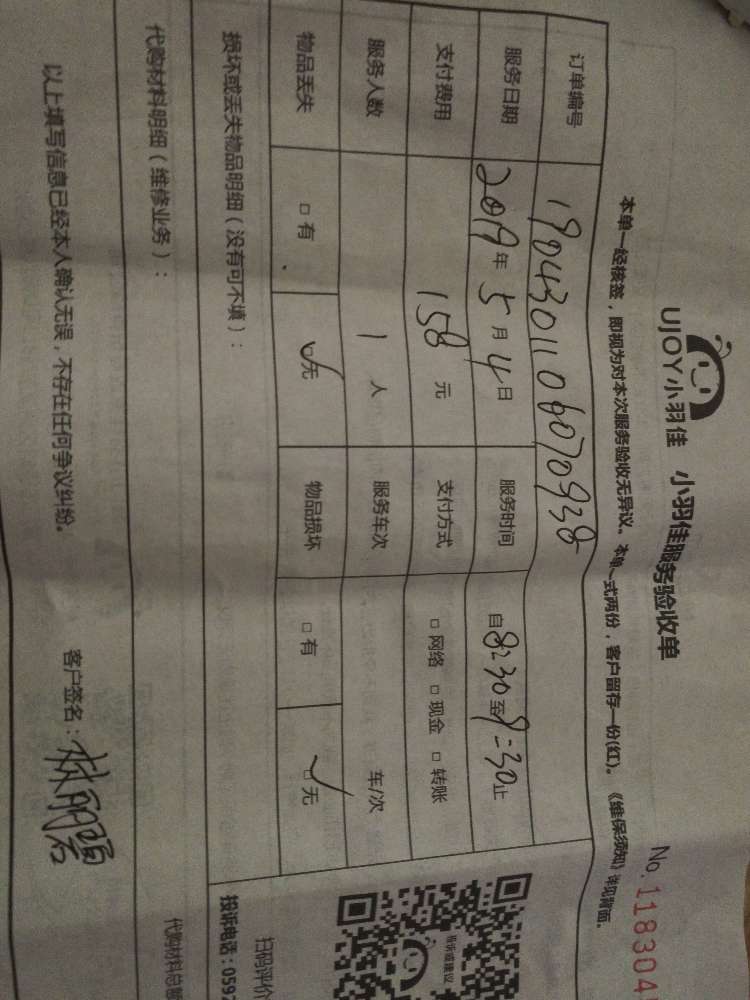 UJOY小羽佳 小羽佳服务验收单
No.118304
本单一经核签，即视为对本次服务验收无异议。本单一式两份，客户留存一份(红)。《维保须知》详见背面。
订单编号 190430110607093​8
服务日期 2019年5月4日 服务时间 自8:30至9:30止
支付费用 158元 支付方式 □网络 □现金 □转账
服务人数 1人 服务车次 车/次
物品丢失 □有 □无 物品损坏 □有 □无
损坏或丢失物品明细（没有可不填）：
投诉或建议
扫码评价
投诉电话：059
代购材料明细（维修业务）：
代购材料总
以上填写信息已经本人确认无误，不存在任何争议纠纷。 客户签名：